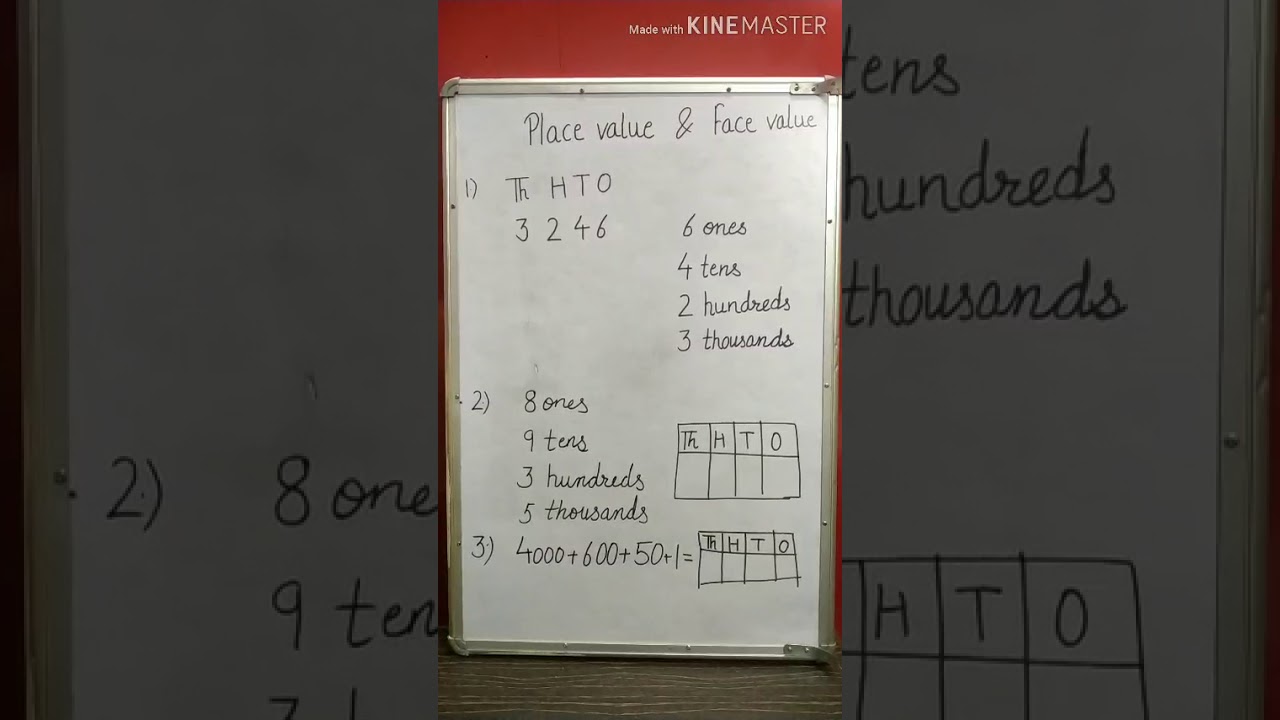 Made with KINEMASTER
Place value & Face value
1) Th H T O
3 2 4 6
6 ones
4 tens
2 hundreds
3 thousands
2) 8 ones
9 tens
3 hundreds
5 thousands
Th H T O
3) 4000+600+50+1=
Th H T O
tens
hundreds
thousands
2) 8 one
9 ten
H T O